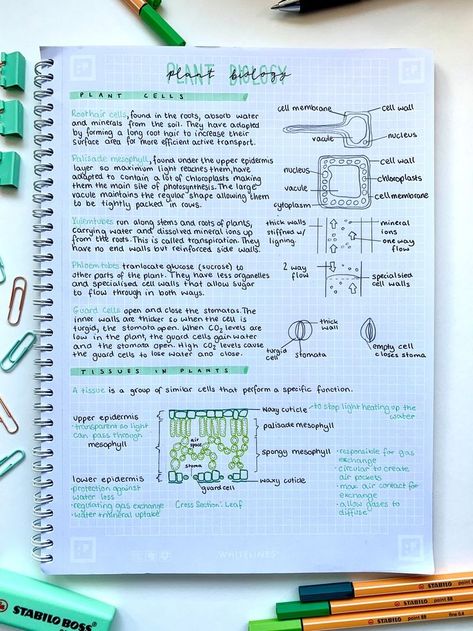 PLANT BIOLOGY
plant biology
PLANT CELLS
Root hair cells, found in the roots, absorb water
and minerals from the soil. They have adapted
by forming a long root hair to increase their
surface area for more efficient active transport.
cell membrane
cell wall
vacule
nucleus
Palisade mesophyll, found under the upper epidermis
layer so maximum light reaches them, have
adapted to contain a lot of chloroplasts, making
them the main site of photosynthesis. The large
vacule maintains the regular shape allowing them
to be tightly packed in rows.
nucleus
vacule
cytoplasm
cell wall
chloroplasts
cell membrane
Xylem tubes run along stems and roots of plants,
carrying water and dissolved mineral ions up
from the roots. This is called transpiration. They
have no end walls but reinforced side walls.
thick walls
stiffned w/
ligning.
mineral
ions
one way
flow
Phloem tubes tranlocate glucose (sucrose) to
other parts of the plant. They have less organelles
and specialised cell walls that allow sugar
to flow through in both ways.
2 way
flow
specialsied
cell walls
Guard cells open and close the stomatas. The
inner walls are thicker so when the cell is
turgid, the stomata open. When CO2 levels are
low in the plant, the guard cells gain water
and the stomata open. High CO2 levels cause
the guard cells to lose water and close.
thick
wall
turgid
cell
stomata
empty cell
closes stoma
TISSUES IN PLANTS
A tissue is a group of similar cells that perform a specific function.
upper epidermis
•transparent so light
can pass through
mesophyll
lower epidermis
•protection against
water loss
•regulating gas exchange
•water + mineral uptake
air
space
stoma
guard cell
Cross Section: Leaf
waxy cuticle
•to stop light heating up the
water
palisade mesophyll
spongy mesophyll
waxy cuticle
•responsible for gas
exchange
•circular to create
air pockets
•max air contact for
exchange
•allow gases to
diffuse
WHITELINES
STABILO BOSS
STABILO point 88
STABILO point 88